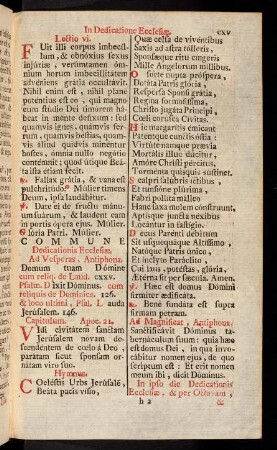 In Dedicatione Ecclesiæ. cxv
Lectio vi.
Fuit illi corpus imbecillum, & obnóxius sexus
injúriæ, verúmtamen ómnium horum imbecillitátem
advéniens grátia occultávit.
Nihil enim est, nihil plane
potentius eo . quì magno
cum stúdio Dei timórem habeat in mente defixum: sed
quamvis ignes, quamvis ferrum, quamvis béstias, quamvis áliud quidvis minétur
hostis, ómnia nullo negótio
contémnit: quod útique Beáta illa étiam fecit.
℣. Fallax grátia, & vana est
pulchritúdo. ℟ Múlier timens
Deum, ipsa laudábitur.
℣. Date ei de fructu mánuum suárum, & laudent eam
in portis ópera ejus. Múlier.
Glória Patri. Múlier.
COMMUNE
Dedicationis Ecclesiæ.
Ad Vesperas, Antiphona.
Domum tuam Dómine
cum reliq; de Laud. cxxv.
Psalm. Dixit Dóminus. cum
reliquis de Dominica. 126.
& loco ultimi, Psal. Lauda
Jerúsalem. 146.
Capitulum. Apoc. 21.
Vidi civitátem sanctam
Jerúsalem novam descendéntem de cœlo à Deo
parátam sicut sponsam ornátam viro suo.
Hymnus.
Cœléstis Urbs Jerúsalē,
Beáta pacis vísio,
Quæ celsa de vivéntibus
Saxis ad astra tólleris,
Sponsæque ritu cíngeris
Mille Angelórum míllibus.
O sorte nupta próspera,
Dotáta Patris glória,
Respérsa Sponsi grátia,
Regína formosíssima,
Christo jugáta Príncipi,
Cœli corúsca Cívitas.
Hìc margarítis émicant
Paténtque cunctis óstia:
Virtúte namque prævia
Mortális illuc dúcitur,
Amóre Christi pércitus,
Torménta quisquis sústinet.
Scalpri salúbris íctibus
Et tunsióne plúrima
Fabri políta málleo
Hanc saxa molem cónstruunt,
Aptísque juncta néxibus
Locántur in fastígio.
Decus Parénti débitum
Sit usquequáque Altíssimo,
Natóque Patris único,
Et ínclyto Paráclito:
Cui laus, potéstas, glória,
Ætérna sit per sǽcula. Amen.
℣. Hæc est domus Dómini
fírmiter ædificáta.
℟. Bene fundáta est supra
firmam petram.
Ad Magnificat, Antiphona.
Sanctificávit Dóminus tabernáculum suum: quia hæc
est domus Dei , in qua invocábitur nomen ejus, de quo
scriptum est: Et erit nomen
meum ibi, dicit Dóminus.
In ipso die Dedicationis
Ecclesiæ, & per Octavam,
h 2 &